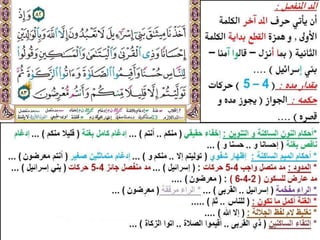 المد المنفصل :
أن يأتي حرف المد آخر الكلمة
الأولى . و همزة القطع بداية الكلمة
الثانية ( بما أنزل – قالوا آمنا –
بني إسرائيل ) ....
مقدار مده : ( 4 – 5 ) حركات
حكمه : الجواز ( يجوز مده و
قصره ) ....
وَإِذْ
أَخَذْنَا مِيثَاقَ بَنِي إِسْرَائِيلَ لَا تَعْبُدُونَ إِلَّا اللَّهَ وَبِالْوَالِدَيْنِ
إِحْسَانًا وَذِي الْقُرْبَىٰ وَالْيَتَامَىٰ وَالْمَسَاكِينِ وَقُولُوا
لِلنَّاسِ حُسْنًا وَأَقِيمُوا الصَّلَاةَ وَآتُوا الزَّكَاةَ ثُمَّ
تَوَلَّيْتُمْ إِلَّا قَلِيلًا مِنْكُمْ وَأَنْتُمْ مُعْرِضُونَ ٨٣
*أحكام النون الساكنة و التنوين : إخفاء حقيقي ( منكم .. أنتم ) ... إدغام كامل بغنة ( قليلا منكم ) ... إدغام
ناقص بغنة ( إحسانا و .. حسنا و ) ...
*أحكام الميم الساكنة : إظهار شفوي ( توليتم إلا .. منكم و ) ... إدغام متماثلين صغير ( أنتم معرضون ) ...
*المدود : مد متصل واجب 4-5 حركات : ( إسرائيل ) ... مد منفصل جائز 4-5 حركات ( بني إسرائيل ) ...
مد عارض للسكون ( 2-4-6 ) : ( معرضون ) ....
*الراء مفخمة ( إسرائيل .. القربى ) ... الراء مرققة ( معرضون ) ...
*الغنة أكمل ما تكون : ( للناس .. ثم ) .....
*تغليظ لام لفظ الجلالة : ( إلا الله ) ....
*التقاء الساكنين ( ذي القربى .. أقيموا الصلاة .. آتوا الزكاة ) ...